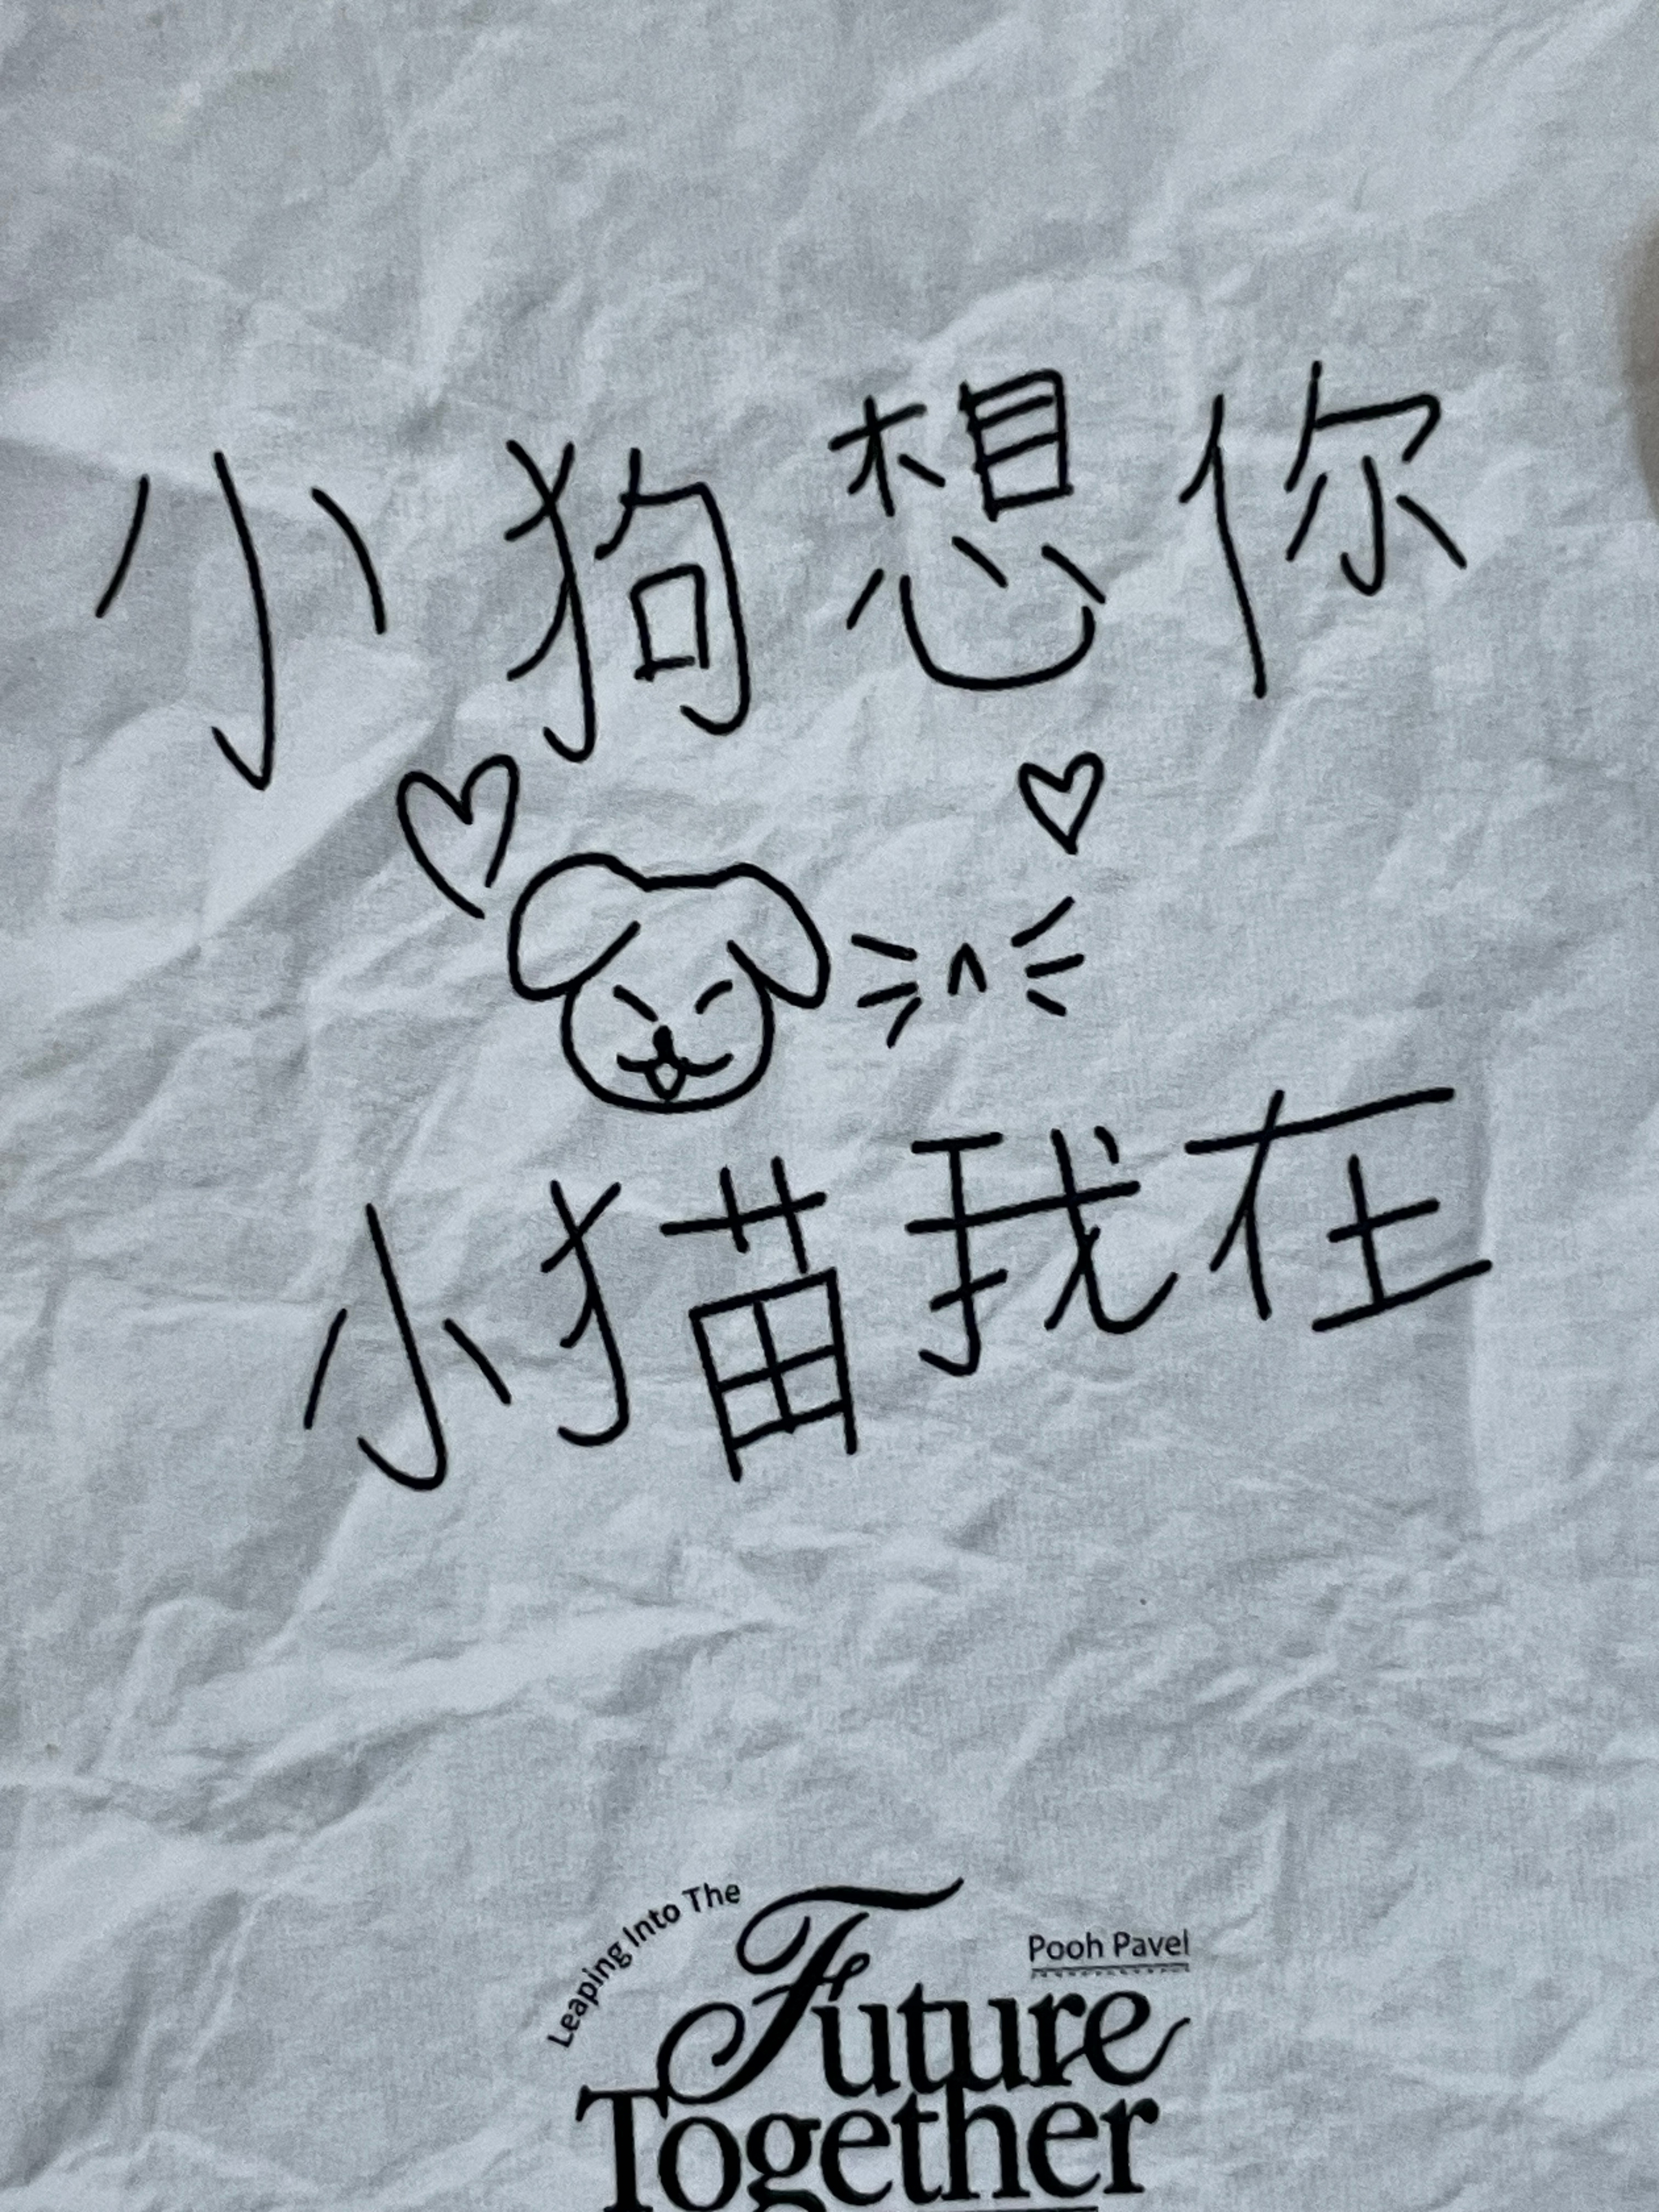 小狗想你
小猫我在
Leaping Into The
Pooh Pavel
Future
Together